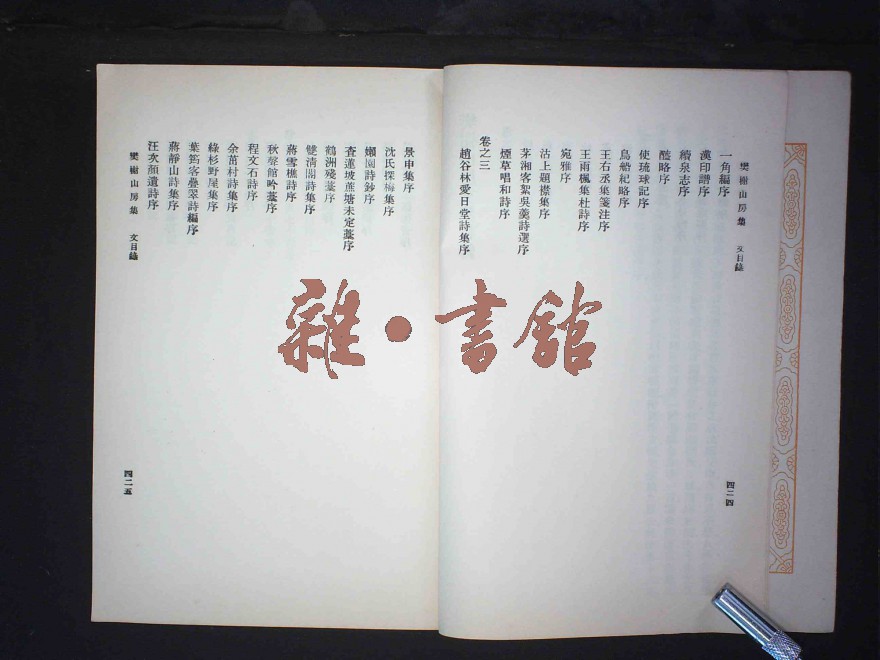 樊榭山房集　文目錄
一角編序
漢印譜序
續泉志序
醢略序
使琉球記序
鳥船紀略序
王右丞集箋注序
王雨楓集杜詩序
宛雅序
沽上題襟集序
茅湘客絮吳羹詩選序
煙草唱和詩序
卷之三
趙谷林愛日堂詩集序
四二四
景申集序
沈氏探梅集序
嬾園詩鈔序
查蓮坡蔗塘未定藁序
鶴洲殘藁序
雙清閣詩集序
蔣雪樵詩序
秋聲館吟藁序
程文石詩序
余茁村詩集序
綠杉野屋集序
葉筠客疊翠詩編序
蔣靜山詩集序
汪次顏遺詩序
樊榭山房集　文目錄
四二五
雜·書館